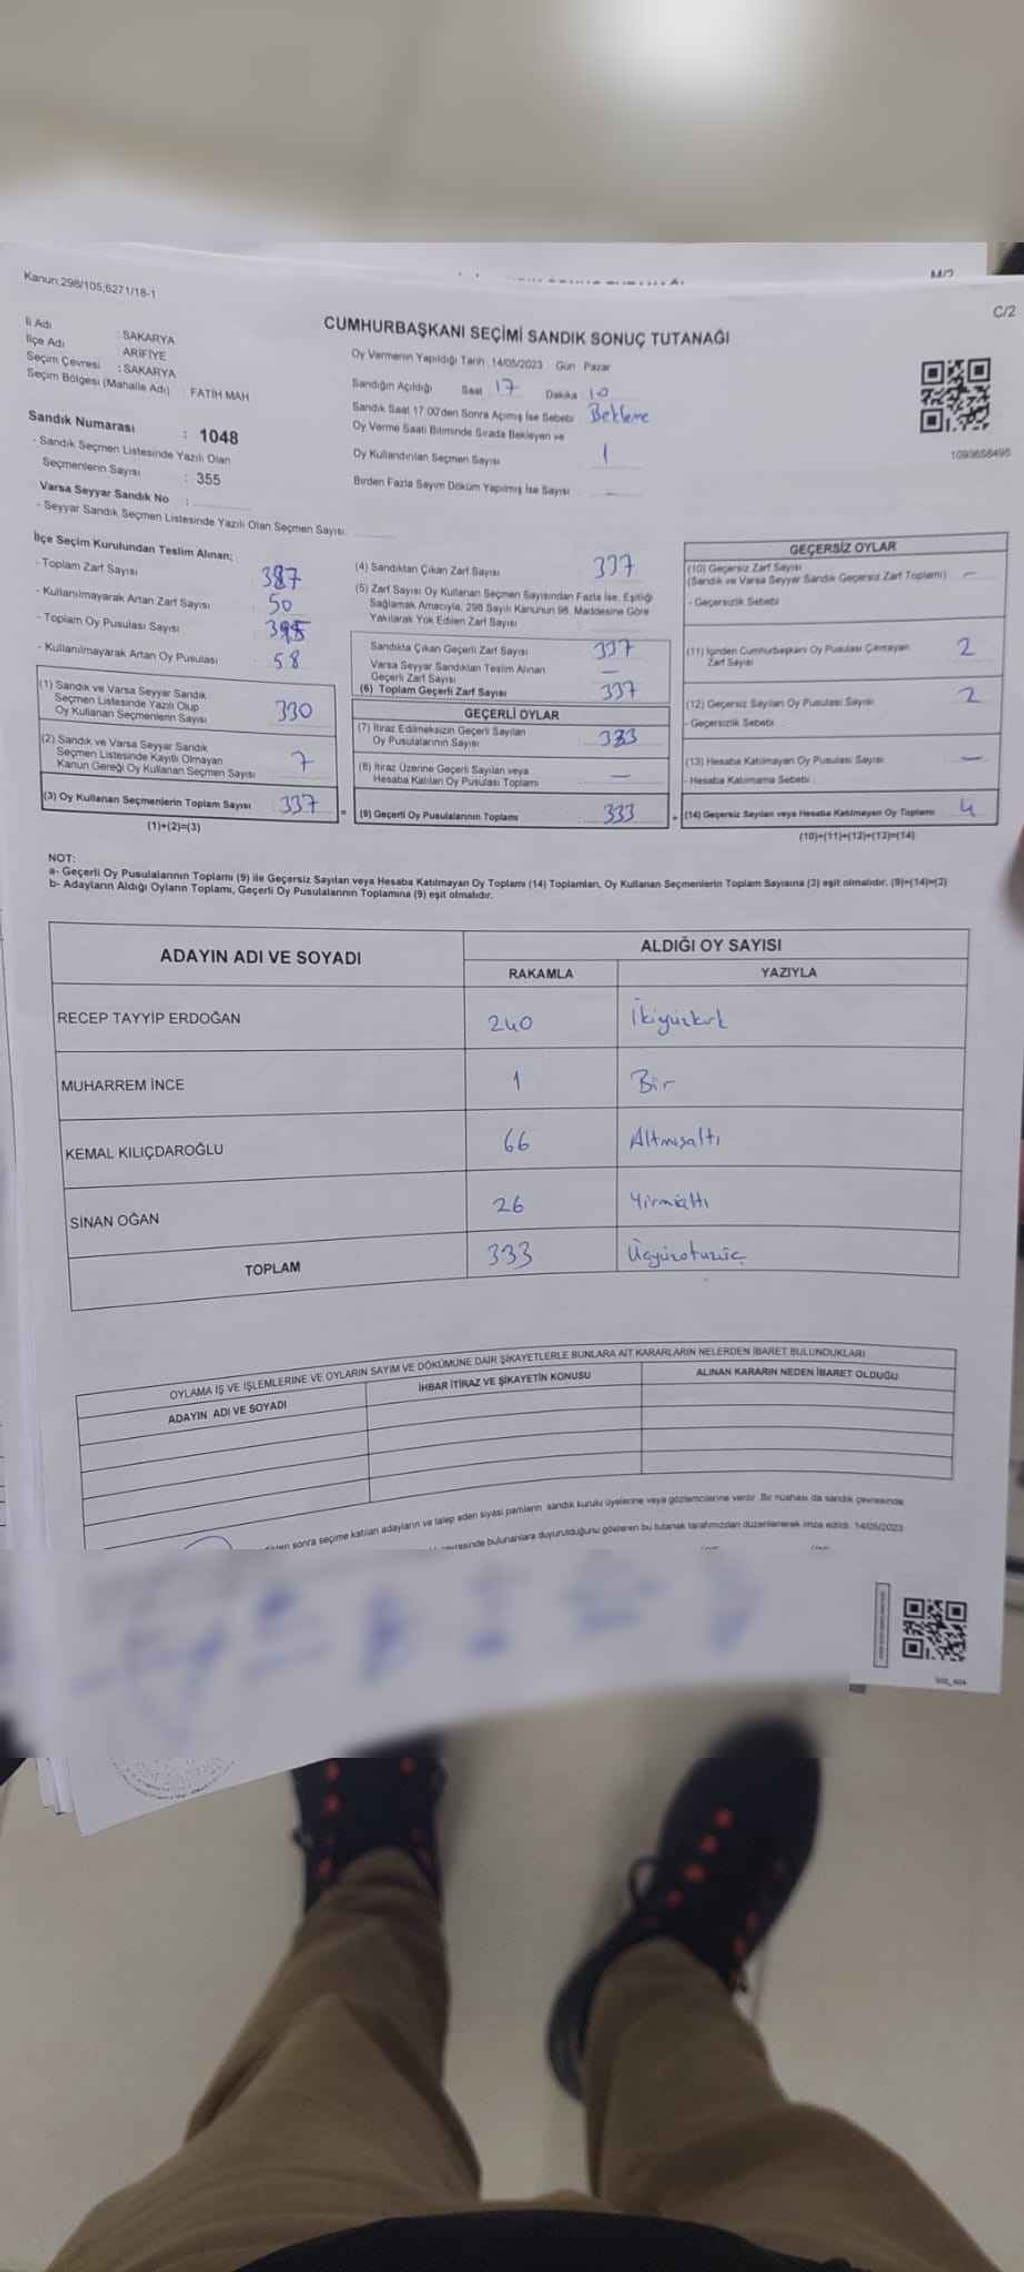 Kanun:298/105;6271/18-1
M/2
C/2
CUMHURBAŞKANI SEÇİMİ SANDIK SONUÇ TUTANAĞI
İl Adı : SAKARYA
İlçe Adı : ARİFİYE
Seçim Çevresi : SAKARYA
Seçim Bölgesi (Mahalle Adı) FATİH MAH
Oy Vermenin Yapıldığı Tarih :14/05/2023 Gün Pazar
Sandığın Açıldığı Saat 17 Dakika 10
Sandık Saat 17.00'den Sonra Açımış İse Sebebi Bekleme
Oy Verme Saati Bitiminde Sırada Bekleyen ve
Oy Kullandırılan Seçmen Sayısı 1
Birden Fazla Sayım Döküm Yapılmış İse Sayısı
1093658495
Sandık Numarası : 1048
- Sandık Seçmen Listesinde Yazılı Olan
Seçmenlerin Sayısı : 355
Varsa Seyyar Sandık No :
- Seyyar Sandık Seçmen Listesinde Yazılı Olan Seçmen Sayısı:
İlçe Seçim Kurulundan Teslim Alınan;
- Toplam Zarf Sayısı 387
- Kullanılmayarak Artan Zarf Sayısı 50
- Toplam Oy Pusulası Sayısı 395
- Kullanılmayarak Artan Oy Pusulası 58
(1) Sandık ve Varsa Seyyar Sandık
Seçmen Listesinde Yazılı Olup
Oy Kullanan Seçmenlerin Sayısı 330
(2) Sandık ve Varsa Seyyar Sandık
Seçmen Listesinde Kayıtlı Olmayan
Kanun Gereği Oy Kullanan Seçmen Sayısı 7
(3) Oy Kullanan Seçmenlerin Toplam Sayısı 337
(1)+(2)=(3)
(4) Sandıktan Çıkan Zarf Sayısı 337
(5) Zarf Sayısı Oy Kullanan Seçmen Sayısından Fazla İse, Eşitliği
Sağlamak Amacıyla, 298 Sayılı Kanunun 98. Maddesine Göre
Yakılarak Yok Edilen Zarf Sayısı
Sandıkta Çıkan Geçerli Zarf Sayısı 337
Varsa Seyyar Sandıktan Teslim Alınan
Geçerli Zarf Sayısı —
(6) Toplam Geçerli Zarf Sayısı 337
GEÇERLİ OYLAR
(7) İtiraz Edilmeksizin Geçerli Sayılan
Oy Pusulalarının Sayısı 333
(8) İtiraz Üzerine Geçerli Sayılan veya
Hesaba Katılan Oy Pusulası Toplamı —
= (9) Geçerli Oy Pusulalarının Toplamı 333
GEÇERSİZ OYLAR
(10) Geçersiz Zarf Sayısı
(Sandık ve Varsa Seyyar Sandık Geçersiz Zarf Toplamı) —
- Geçersizlik Sebebi
(11) İçinden Cumhurbaşkanı Oy Pusulası Çıkmayan
Zarf Sayısı 2
(12) Geçersiz Sayılan Oy Pusulası Sayısı 2
- Geçersizlik Sebebi
(13) Hesaba Katılmayan Oy Pusulası Sayısı —
- Hesaba Katılmama Sebebi
+ (14) Geçersiz Sayılan veya Hesaba Katılmayan Oy Toplamı 4
(10)+(11)+(12)+(13)=(14)
NOT:
a- Geçerli Oy Pusulalarının Toplamı (9) ile Geçersiz Sayılan veya Hesaba Katılmayan Oy Toplamı (14) Toplamları, Oy Kullanan Seçmenlerin Toplam Sayısına (3) eşit olmalıdır. (9)+(14)=(3)
b- Adayların Aldığı Oyların Toplamı, Geçerli Oy Pusulalarının Toplamına (9) eşit olmalıdır.
ADAYIN ADI VE SOYADI
ALDIĞI OY SAYISI
RAKAMLA YAZIYLA
RECEP TAYYİP ERDOĞAN 240 İkiyüzkırk
MUHARREM İNCE 1 Bir
KEMAL KILIÇDAROĞLU 66 Altmışaltı
SİNAN OĞAN 26 Yirmialtı
TOPLAM 333 Üçyüzotuzüç
OYLAMA İŞ VE İŞLEMLERİNE VE OYLARIN SAYIM VE DÖKÜMÜNE DAİR ŞİKAYETLERLE BUNLARA AİT KARARLARIN NELERDEN İBARET BULUNDUKLARI
ADAYIN ADI VE SOYADI İHBAR İTİRAZ VE ŞİKAYETİN KONUSU ALINAN KARARIN NEDEN İBARET OLDUĞU
sonra seçime katılan adayların ve talep eden siyasi partilerin sandık kurulu üyelerine veya gözlemcilerine verilir. Bir nüshası da sandık çevresinde
bulunanlara duyurulduğunu gösteren bu tutanak tarafımızdan düzenlenerek imza edildi. 14/05/2023